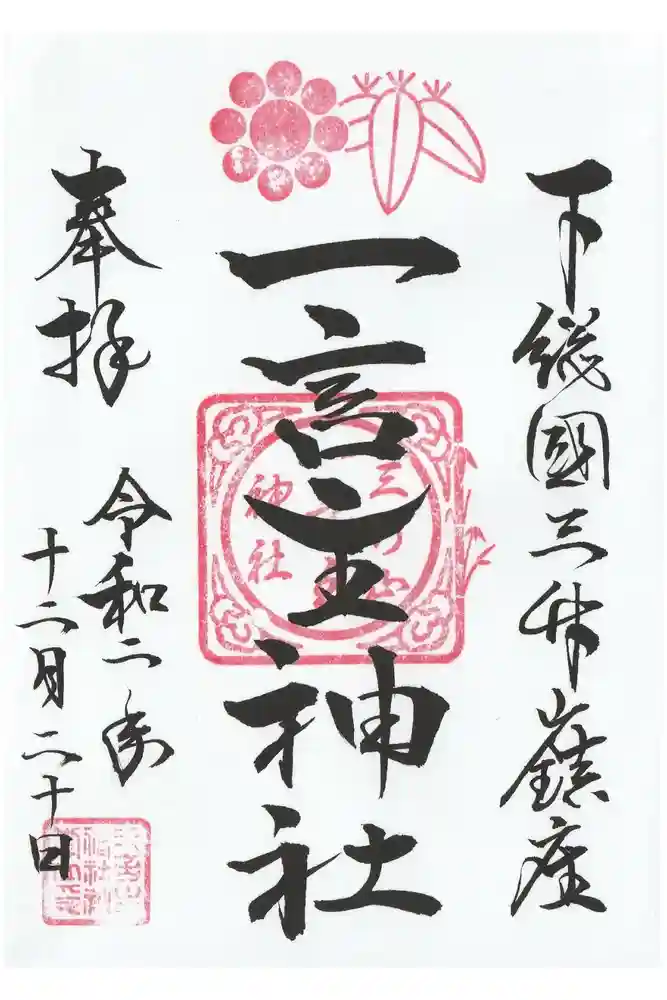 下総國三竹山鎮座
一言主神社
奉拝
令和二年
十二月二十日
神社